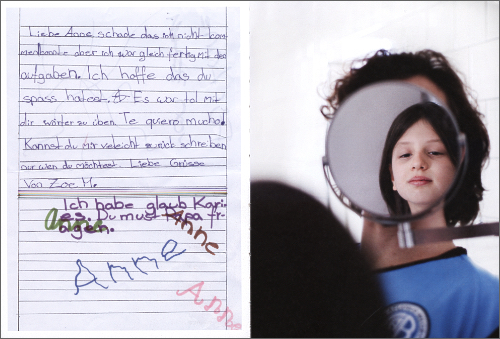 Liebe Anne, schade das ich nicht kom-
menkonnte aber ich war glech fertig mit den
aufgaben. Ich hoffe das du
spass hatest. Es war tol mit
dir wörter zu üben. Te quiero mucho.
Kannst du mir veleicht zurück schreiben
nur wen du möchtest. Liebe Grüsse
Von Zoe. M.
Ich habe glaub Kari-
es. Du must Papa fr-
agen.
Anne
Anne
Anne
Anne